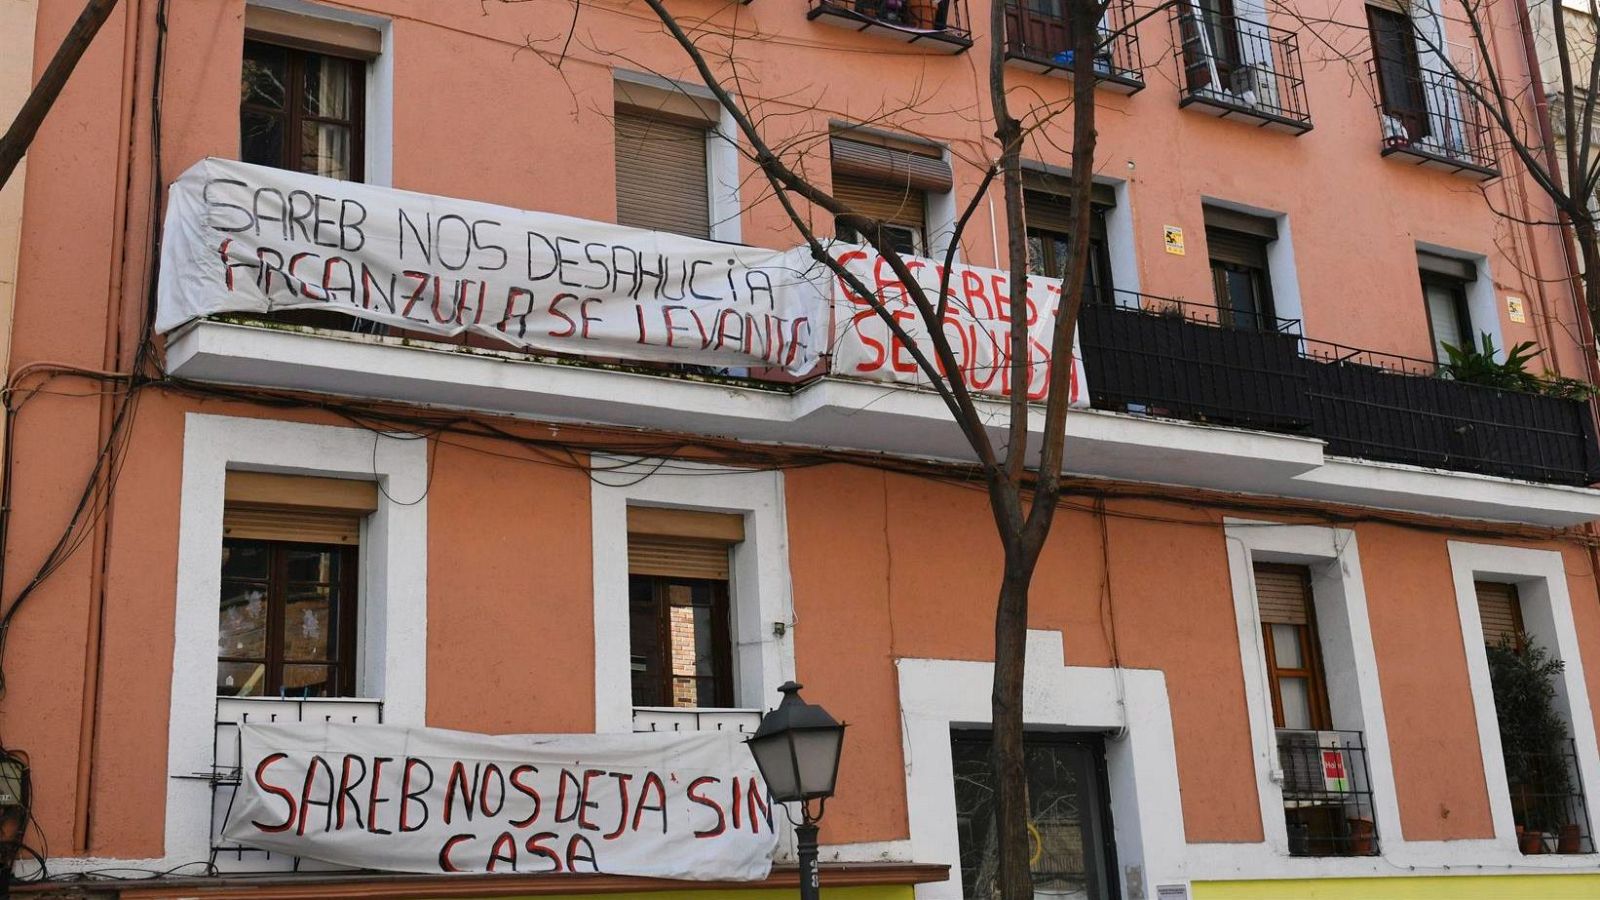 SAREB NOS DESAHUCIA
ARGANZUELA SE LEVANTA
CACERES 7
SE QUEDA
SAREB NOS DEJA SIN
CASA